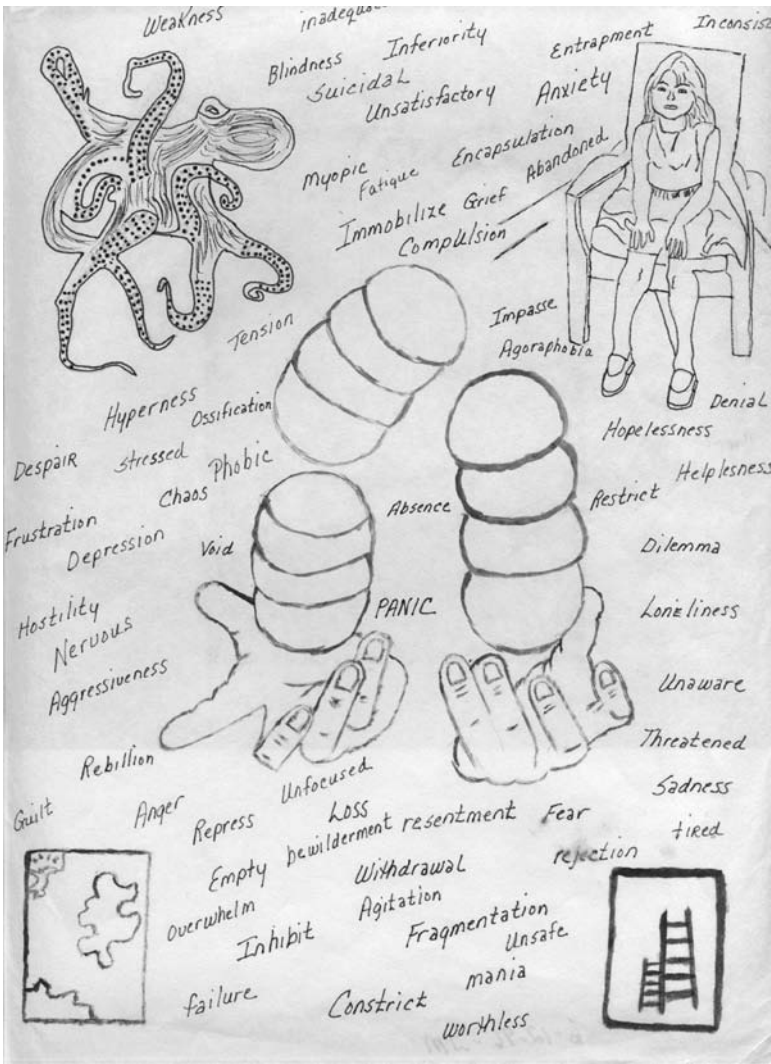 Weakness
Inferiority
Blindness
Entrapment
Suicidal
Unsatisfactory
Anxiety
Myopic
Encapsulation
Fatigue
Abandoned
Immobilize
Grief
Compulsion
Tension
Impasse
Agoraphobia
Hyperness
Ossification
Denial
Hopelessness
Despair
stressed
Phobic
Helplesness
Chaos
Absence
Restrict
Frustration
Depression
Void
Dilemma
Hostility
PANIC
Lonliness
Nervous
Aggressiveness
Unaware
Threatened
Rebillion
Unfocused
Sadness
Guilt
Anger
Repress
Loss
bewilderment
resentment
Fear
tired
Empty
Withdrawal
rejection
overwhelm
Agitation
Inhibit
Fragmentation
Unsafe
mania
failure
Constrict
worthless